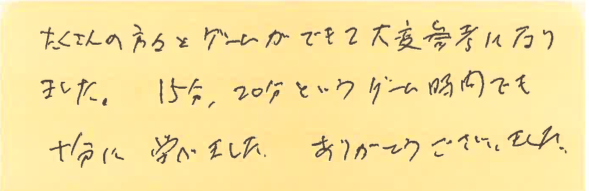 たくさんの方々とゲームができて大変参考になり
ました。 15分, 20分というゲーム時間でも
十分に 学べました. ありがとうございました.